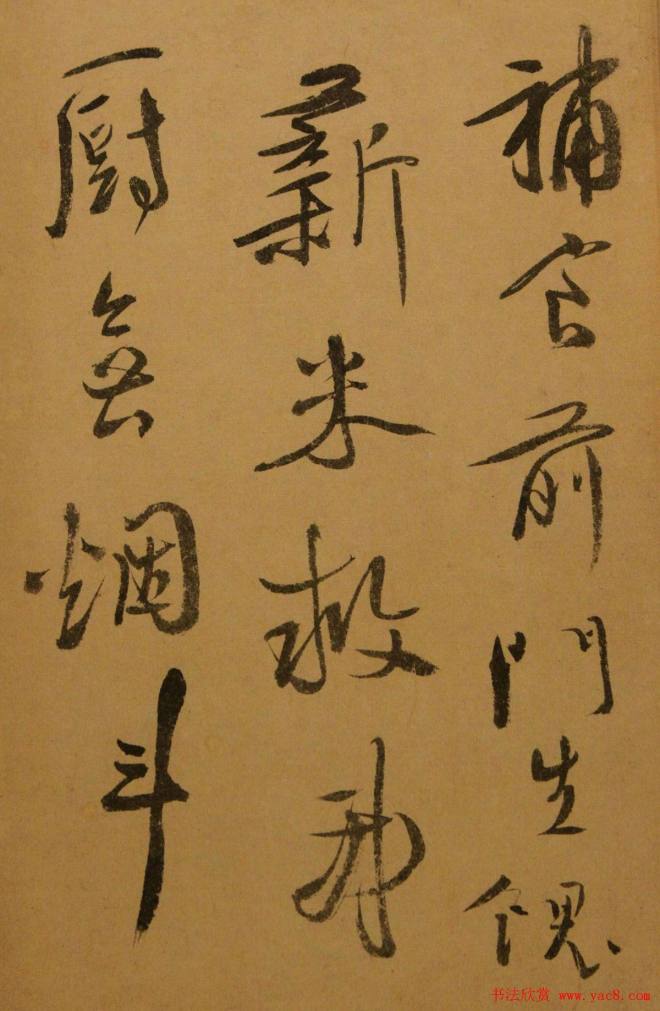 補食前門生饋
薪米救我
廚無烟斗
书法欣赏 www.yac8.com